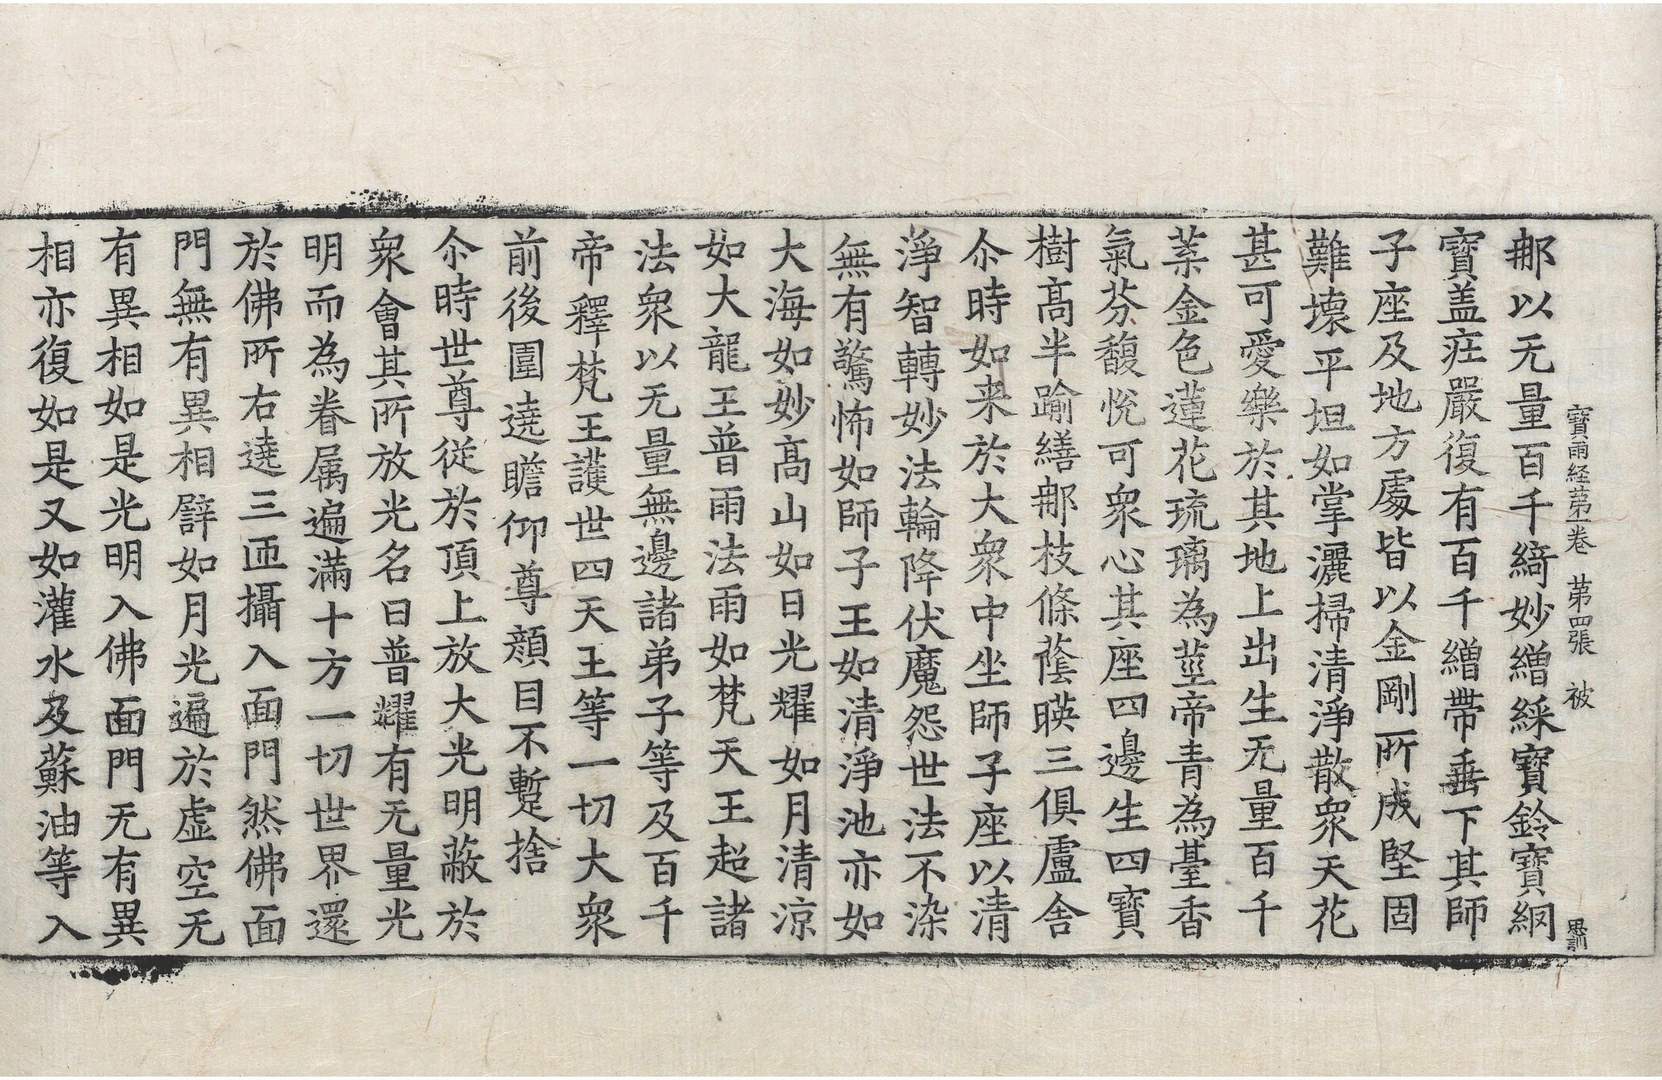 寶雨経苐一卷 苐四張 被
那以无量百千綺妙繒綵寶鈴寶網
寶盖疘嚴復有百千繒帶垂下其師
子座及地方處皆以金剛所成堅固
難壞平坦如掌灑掃清淨散衆天花
甚可愛樂於其地上出生无量百千
葉金色蓮花琉璃為莖帝青為臺香
氣芬馥悅可衆心其座四邊生四寶
樹高半踰繕那枝條蔭暎三俱盧舍
尒時如来於大衆中坐師子座以清
淨智轉妙法輪降伏魔怨世法不染
無有驚怖如師子王如清淨池亦如
大海如妙高山如日光耀如月清涼
如大龍王普雨法雨如梵天王超諸
法衆以无量無邊諸弟子等及百千
帝釋梵王護世四天王等一切大衆
前後圍遶瞻仰尊顔目不蹔捨
尒時世尊從於頂上放大光明蔽於
衆會其所放光名曰普耀有无量光
明而為眷属遍滿十方一切世界還
於佛所右遶三匝攝入面門然佛面
門無有異相譬如月光遍於虛空无
有異相如是光明入佛面門无有異
相亦復如是又如灌水及蘇油等入